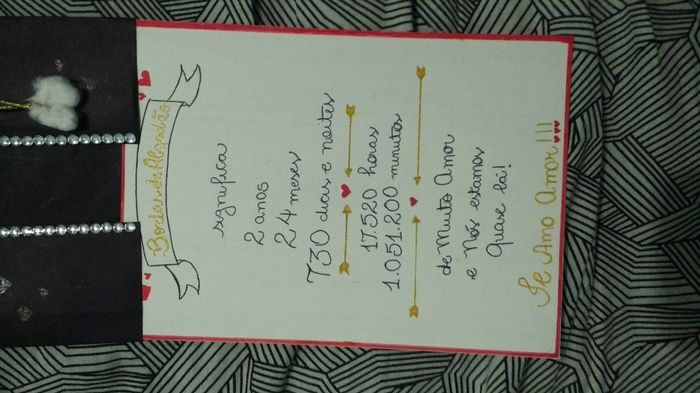 Bodas de Algodão
significa
2 anos
24 meses
730 dias e noites
17.520 horas
1.051.200 minutos
de Muito Amor
e Nós estamos
Quase lá!
Te Amo Amor!!!